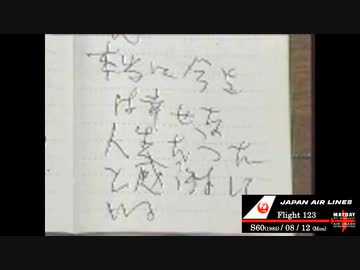 本当に今迄
は幸せな
人生だった
と感謝して
いる
JAPAN AIR LINES
Flight 123
MAYDAY
S60(1985) / 08 / 12 (Mon)